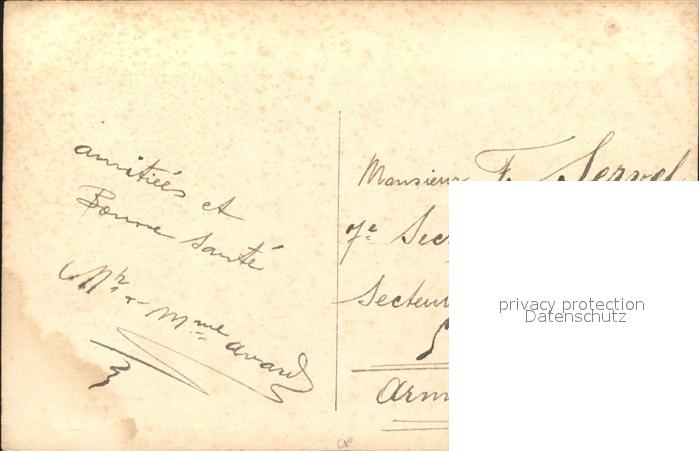 amitiés et
Bonne santé
Mr & Mme Avard
Monsieur F. Servel
7e Sec
Secteur
Arm
privacy protection
Datenschutz